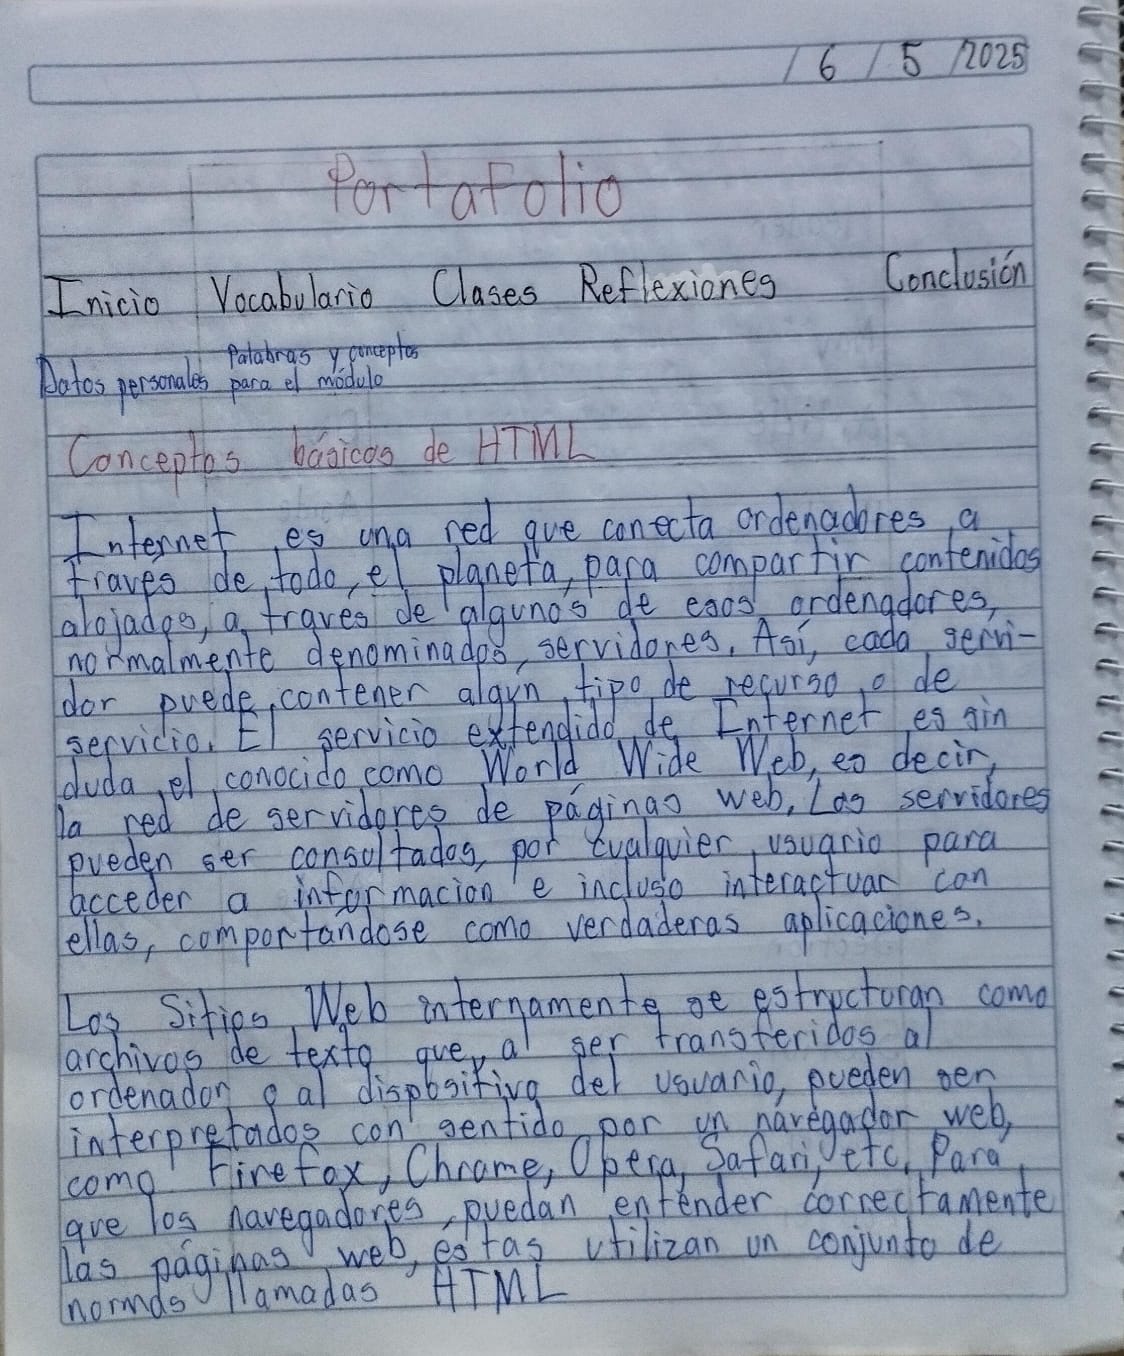 / 6 / 5 /2025
Portafolio
Inicio Vocabulario Clases Reflexiones Conclusión
Palabras y conceptos
Datos personales para el módulo
Conceptos básicos de HTML
Internet es una red que conecta ordenadores a
traves de todo el planeta, para compartir contenidos
alojados, a traves de algunos de esos ordenadores,
normalmente denominados servidores. Así, cada servi-
dor puede contener algún tipo de recurso o de
servicio. El servicio extendido de Internet es sin
duda el conocido como World Wide Web, es decir,
la red de servidores de páginas web. Los servidores
pueden ser consultados por cualquier usuario para
acceder a informacion e incluso interactuar con
ellas, comportandose como verdaderas aplicaciones.
Los Sitios Web internamente se estructuran como
archivos de texto que, al ser transferidos al
ordenador o al dispositivo del usuario, pueden ser
interpretados con sentido por un navegador web,
como Firefox, Chrome, Opera, Safari, etc. Para
que los navegadores puedan entender correctamente
las páginas web, estas utilizan un conjunto de
normas llamadas HTML